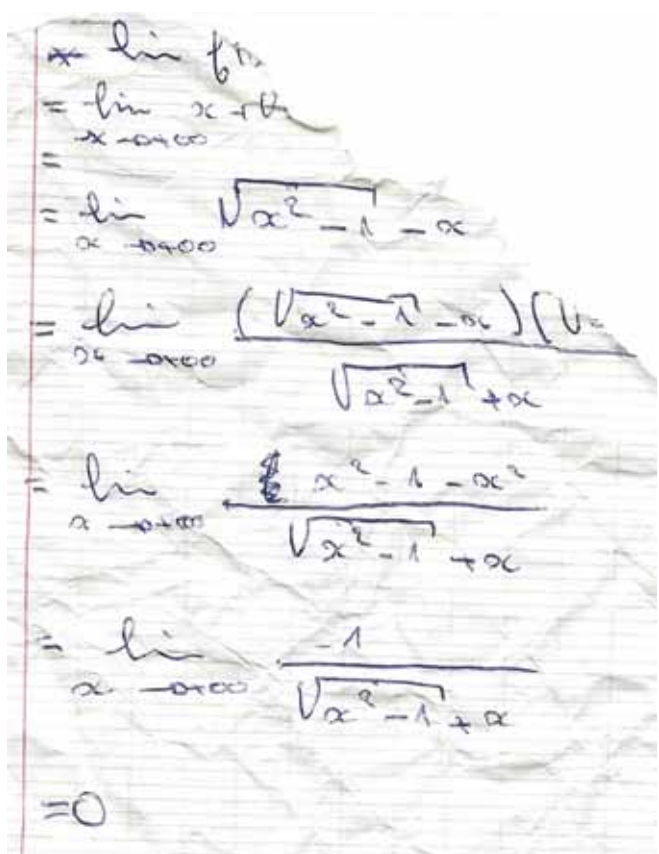 * lim f(
= lim x + √
x → +∞
=
= lim √x² - 1 - x
x → +∞
= lim (√x² - 1 - x)(√
x → +∞ √x² - 1 + x
= lim x² - 1 - x²
x → +∞ √x² - 1 + x
= lim -1
x → +∞ √x² - 1 + x
= 0